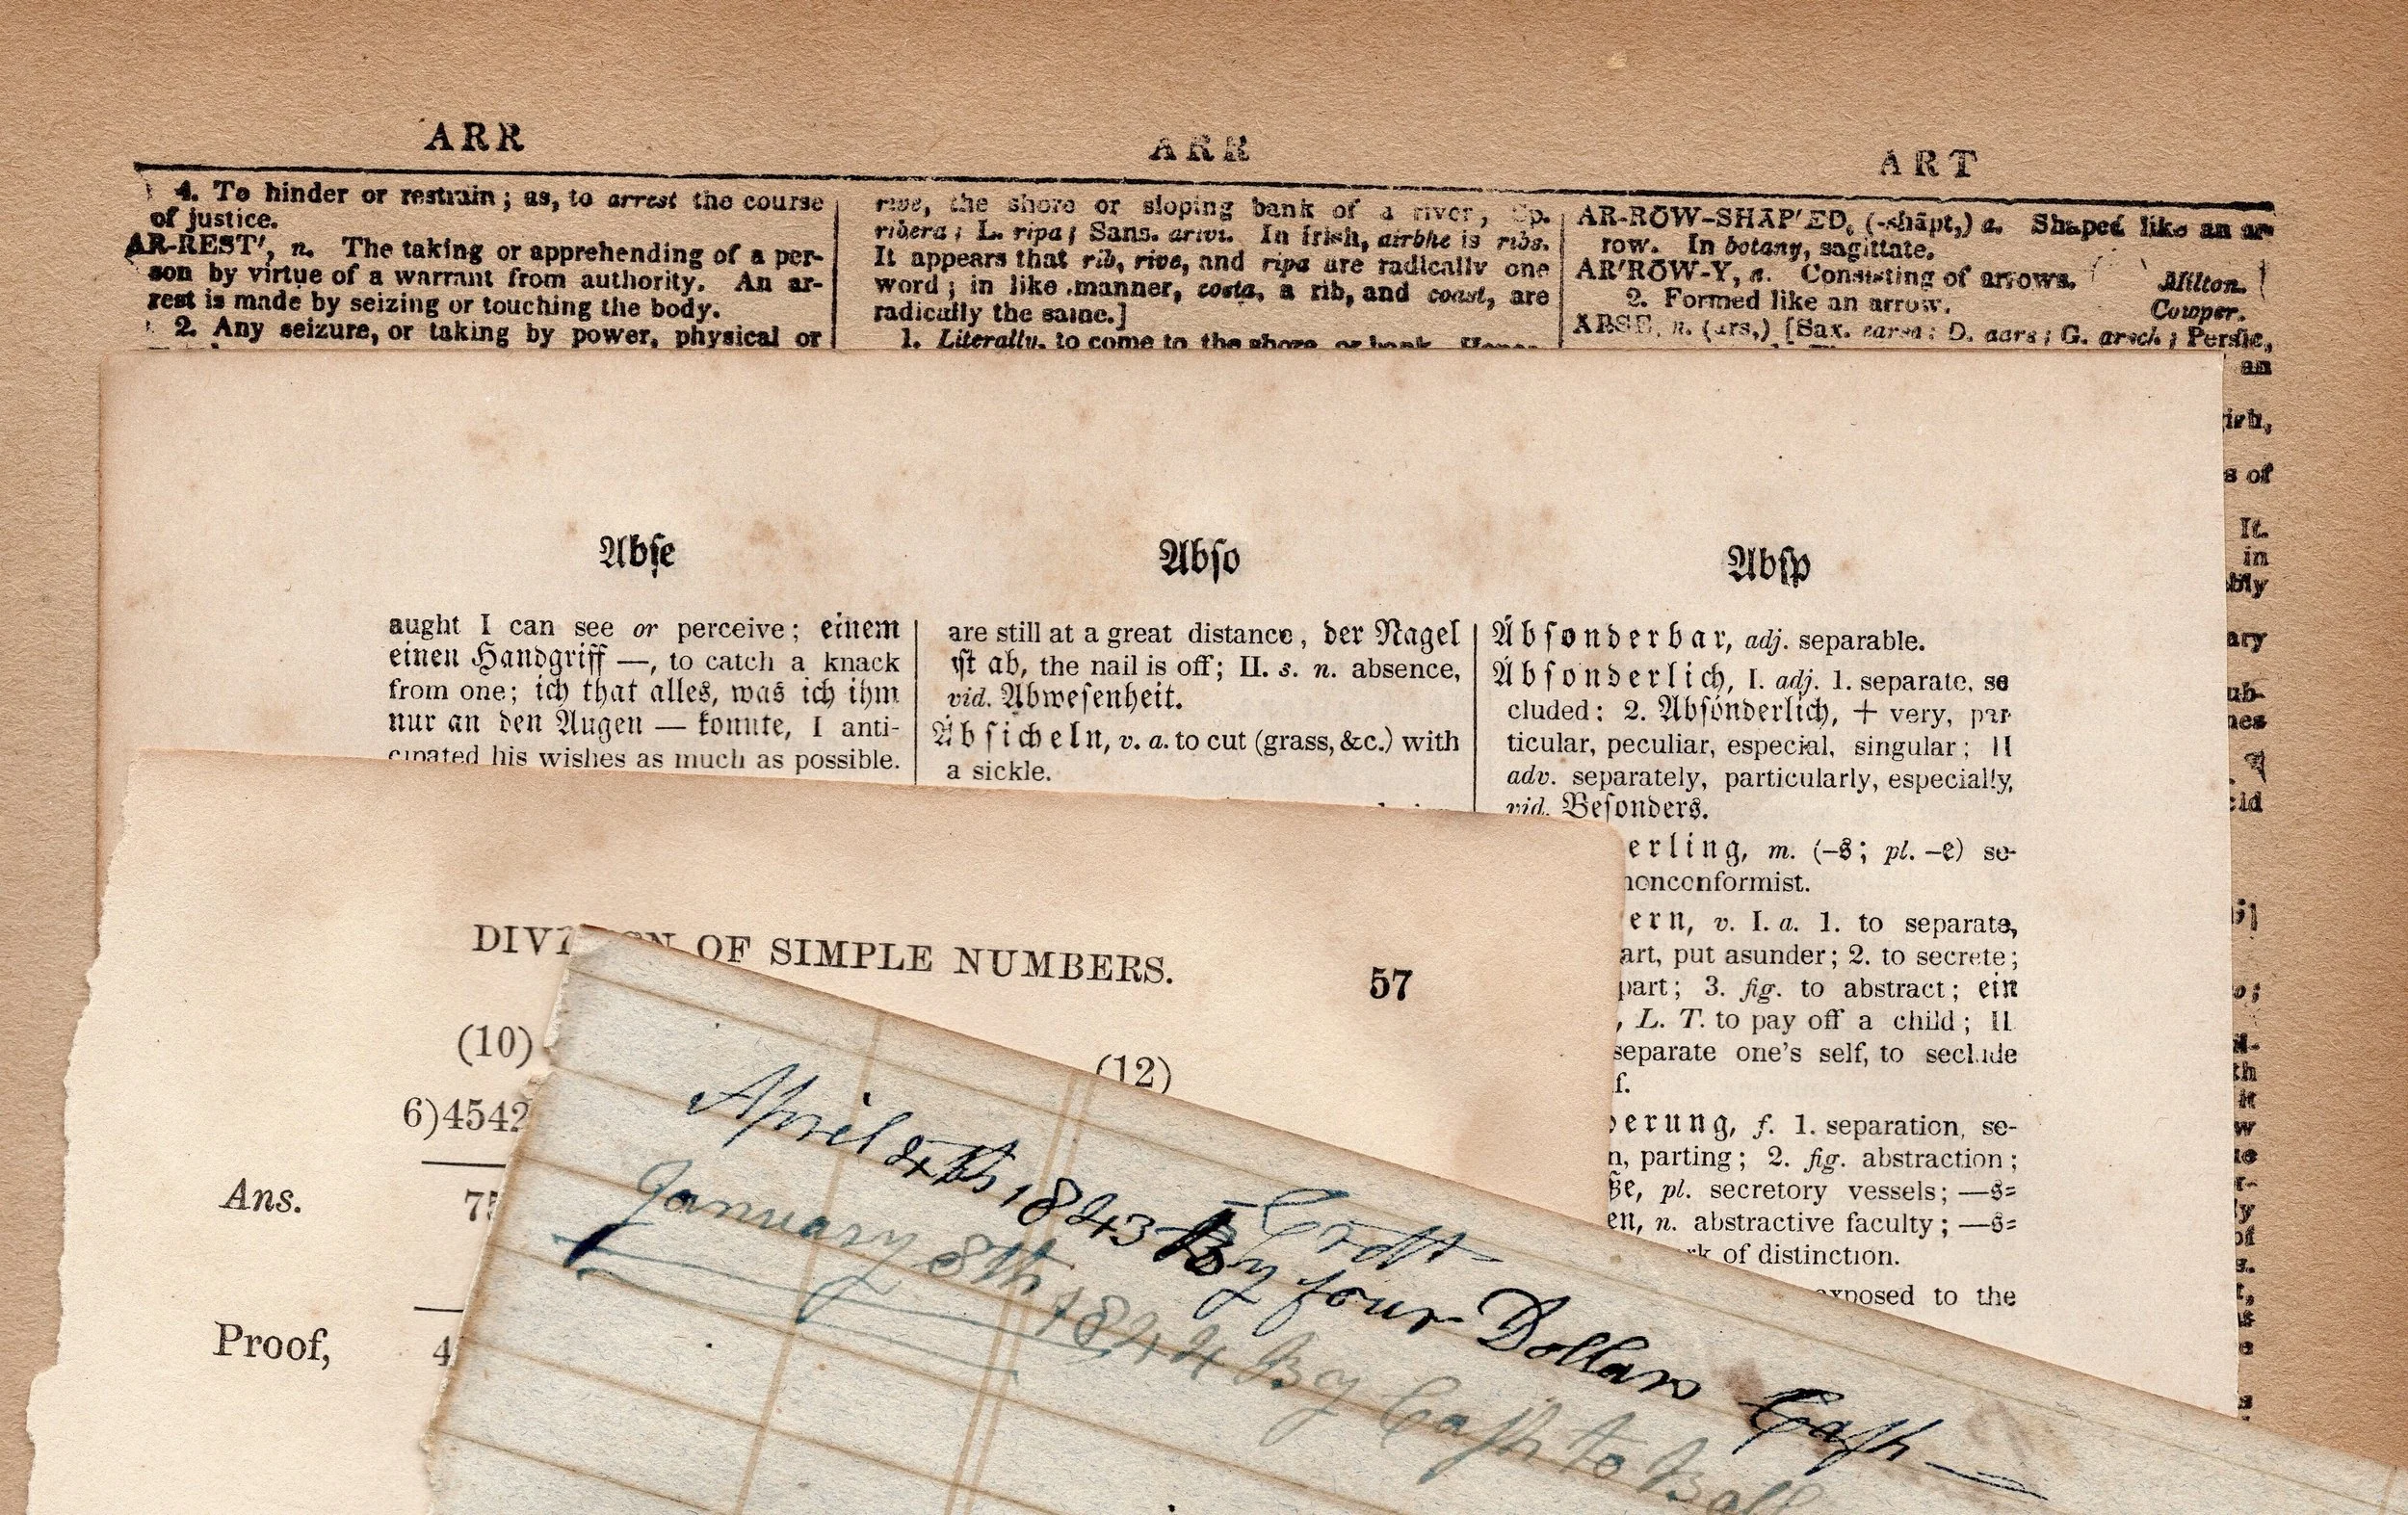 ARR
ARR
ART
4. To hinder or restrain; as, to arrest the course
of justice.
AR-REST', n. The taking or apprehending of a per-
son by virtue of a warrant from authority. An ar-
rest is made by seizing or touching the body.
2. Any seizure, or taking by power, physical or
rive, the shore or sloping bank of a river, Sp.
ribera; L. ripa; Sans. In Irish, airbhe is ribs.
It appears that rib, rive, and ripa are radically one
word; in like manner, costa, a rib, and coast, are
radically the same.]
1. Literally, to come to the shore, or bank.
AR-RŌW-SHĀP'ED, (-shāpt,) a. Shaped like an ar-
row. In botany, sagittate.
AR'RŌW-Y, a. Consisting of arrows. Milton.
2. Formed like an arrow. Cowper.
ARSE, n. (ars,) [Sax. D. aars; G. arsch; Persic,
an
s of
It.
in
Abſe
Abſo
Abſp
aught I can see or perceive; einem
einen Handgriff —, to catch a knack
from one; ich that alles, was ich ihm
nur an den Augen — konnte, I anti-
cipated his wishes as much as possible.
are still at a great distance, der Nagel
iſt ab, the nail is off; II. s. n. absence,
vid. Abweſenheit.
Ábſicheln, v. a. to cut (grass, &c.) with
a sickle.
Ábſonderbar, adj. separable.
Ábſonderlich, I. adj. 1. separate, se
cluded; 2. Abſónderlich, + very, par
ticular, peculiar, especial, singular; II
adv. separately, particularly, especially,
vid. Beſonders.
erling, m. (–s; pl. –e) se-
nonconformist.
ern, v. I. a. 1. to separate,
art, put asunder; 2. to secrete;
part; 3. fig. to abstract; ein
, L. T. to pay off a child; II
separate one's self, to seclude
f.
erung, f. 1. separation, se-
n, parting; 2. fig. abstraction;
ße, pl. secretory vessels; —s=
en, n. abstractive faculty; —s=
rk of distinction.
exposed to the
DIVISION OF SIMPLE NUMBERS.
57
(10)
(12)
6)4542
Ans. 75
Proof, 4
Crdtt
April 4th 1843 By four Dollars Caſh —
January 8th 1844 By Caſh to Ball